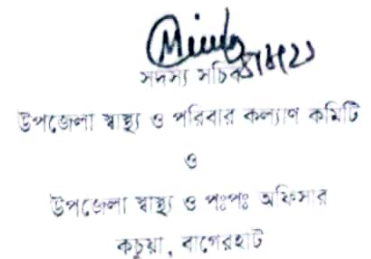 সদস্য সচিব
উপজেলা স্বাস্থ্য ও পরিবার কল্যাণ কমিটি
ও
উপজেলা স্বাস্থ্য ও পঃপঃ অফিসার
কচুয়া, বাগেরহাট